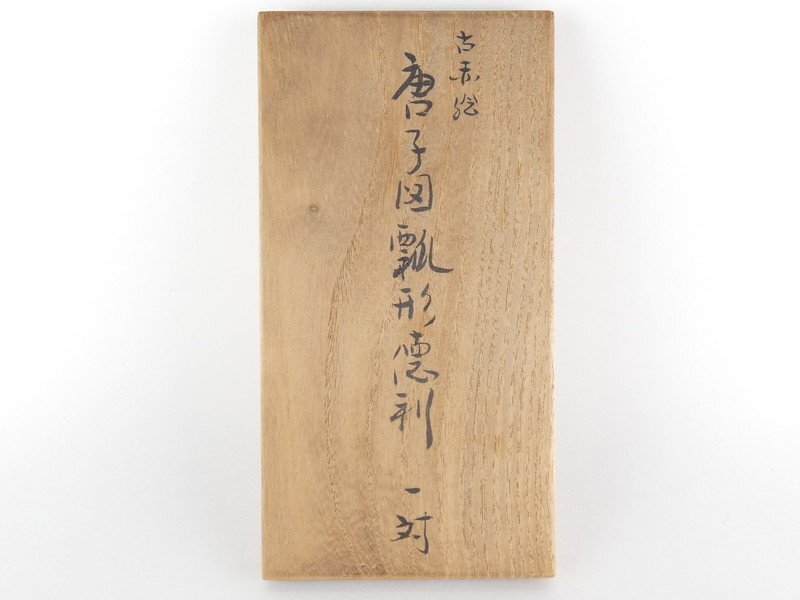 古赤絵
唐子図瓢形徳利 一対